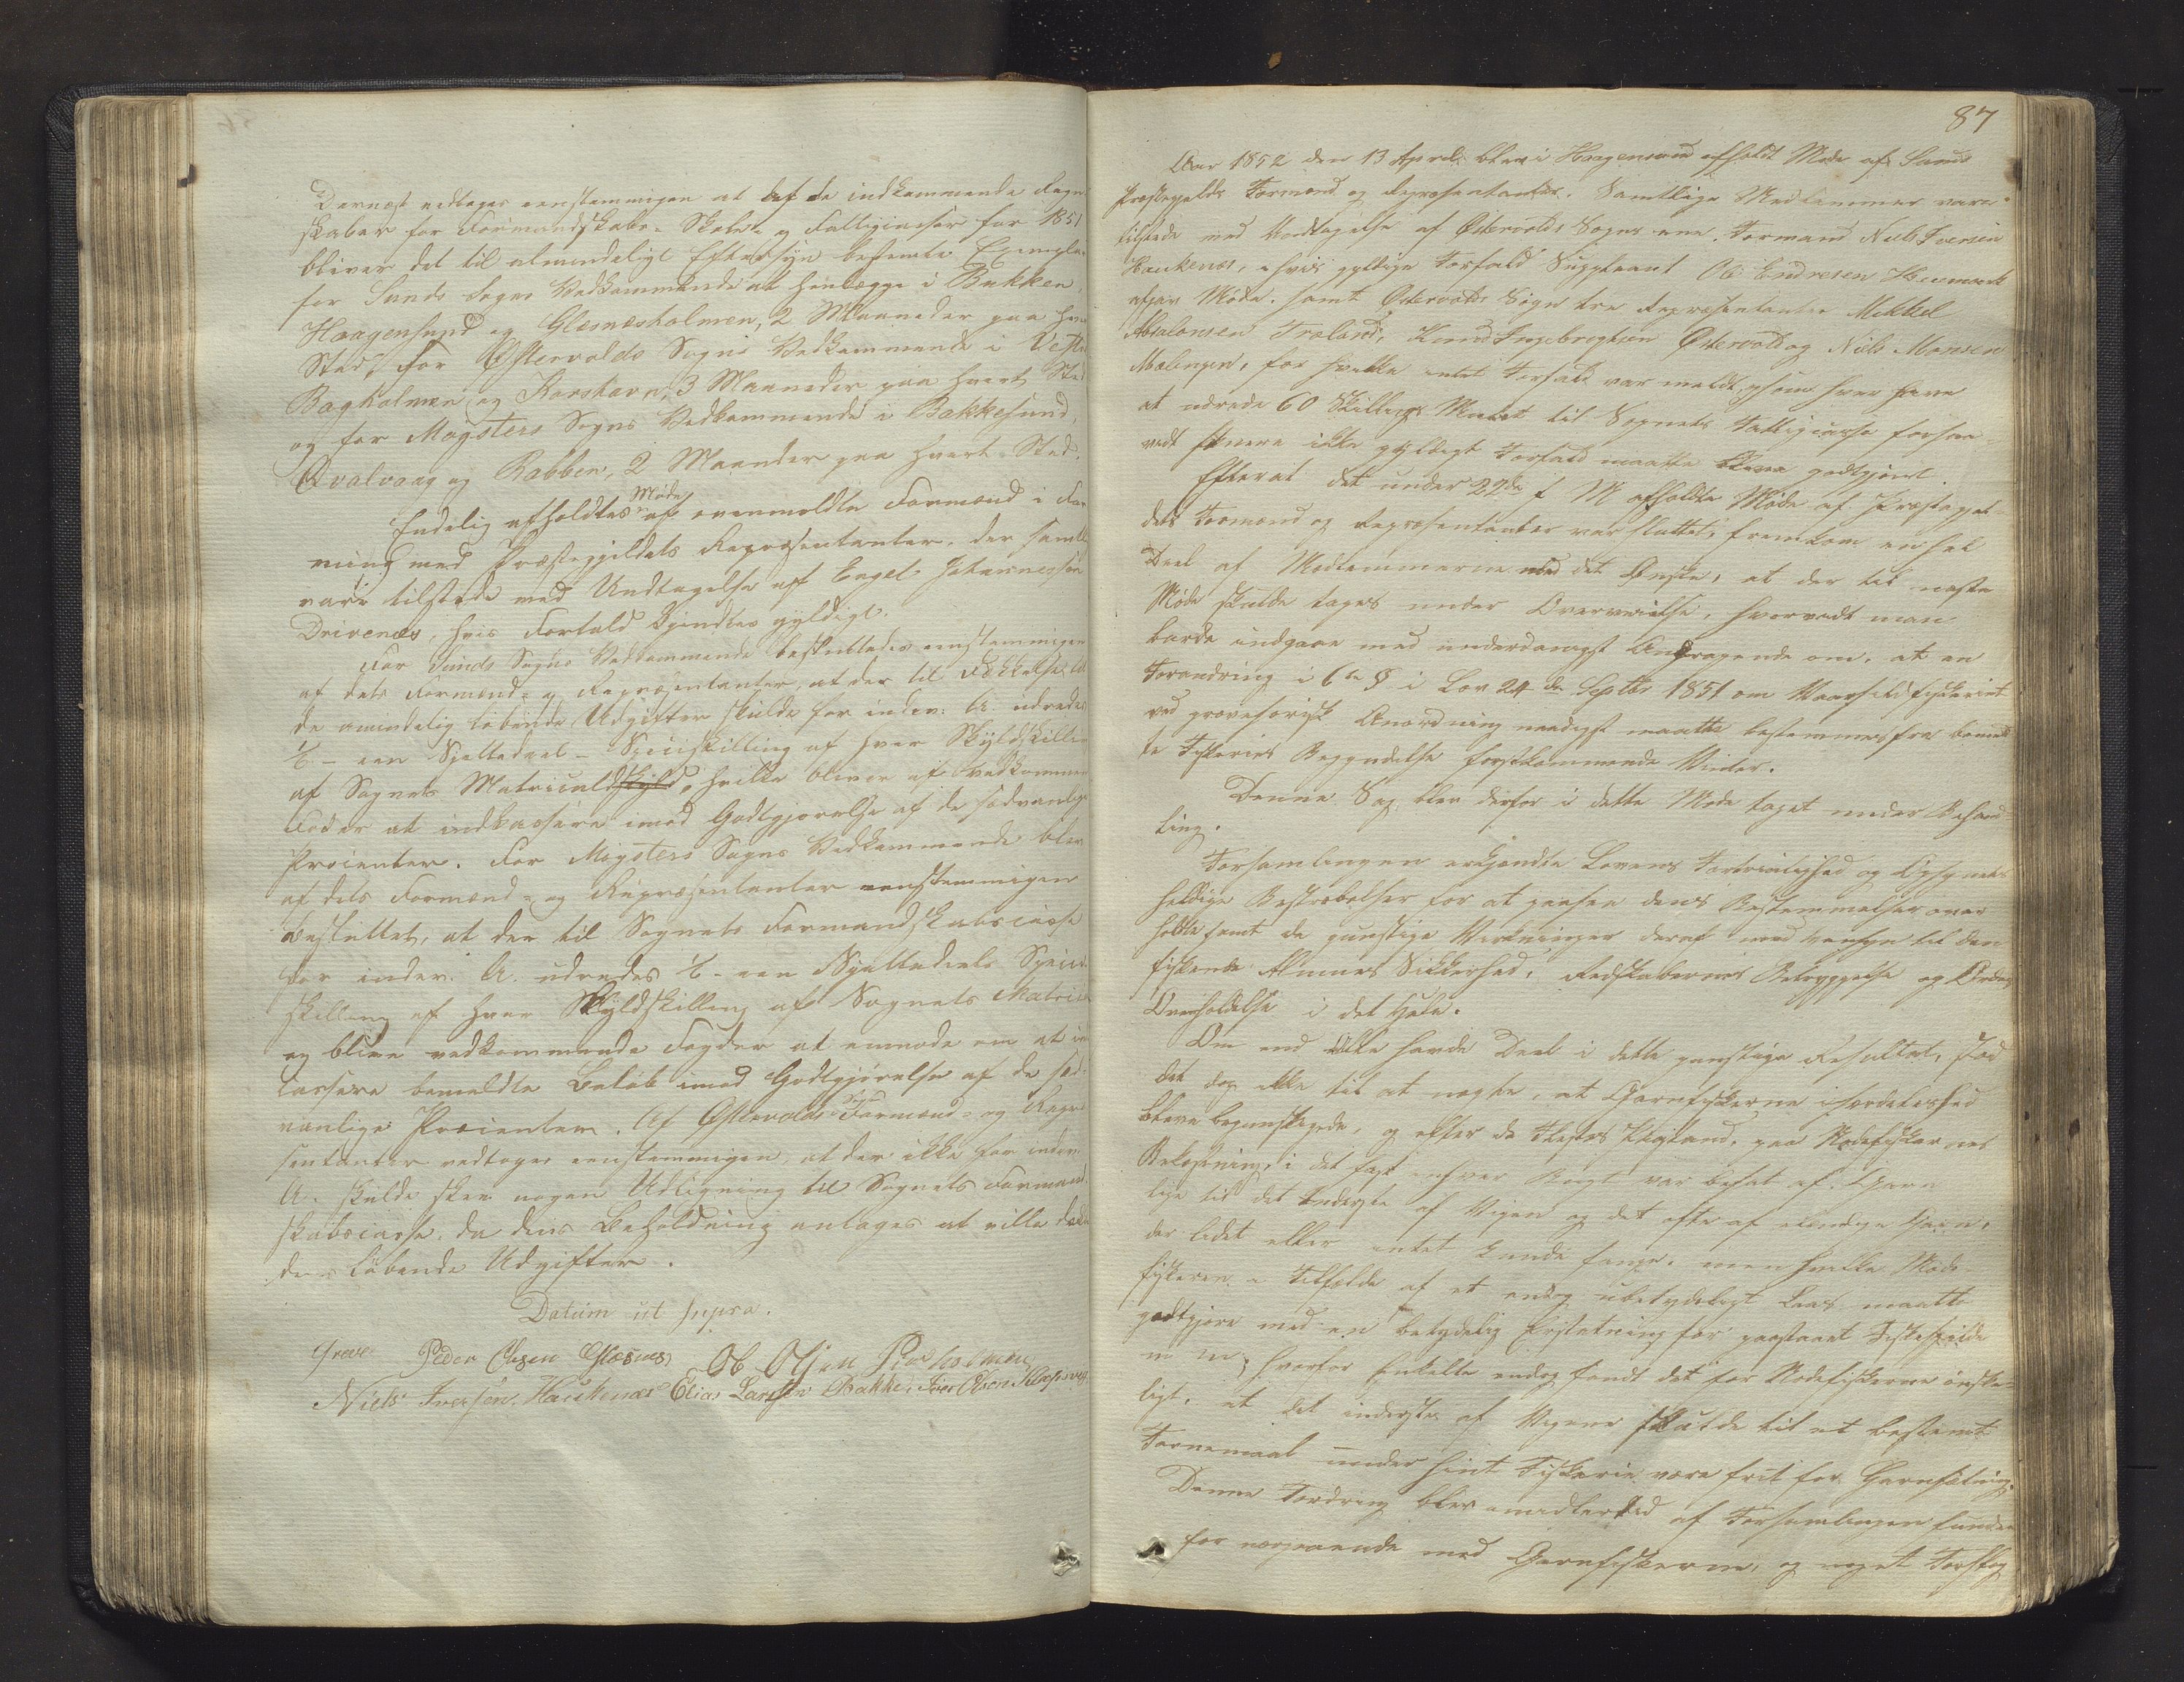 Dernæst vedtoges eenstemmigen at af de indkommende Regn-
skaber for Formandskabs- Skole- og Fattigcasser for 1851
bliver det til almindeligt Eftersyn bestemte Exemplar
for Sunds Sogns Vedkommende at henlægge i Bukken,
Haagensund og Glesnæsholmen, 2 Maaneder paa hvert
Sted, for Østervolds Sogns Vedkommende i Vestre
Bagholmen og Karshavn, 3 Maaneder paa hvert Sted
og for Møgsters Sogns Vedkommende i Bakkesund,
Qvalvaag og Rabben, 2 Maander paa hvert Sted.
Endelig afholdtes Møde af ovenmeldte Formænd i For-
ening med Præstegjeldets Repræsentanter, der samtl.
vare tilstede med Undtagelse af Engel Johannessen
Drivenæs, hvis Forfald kjendtes gyldigt.
For Sunds Sogns Vedkommende besluttedes eenstemmigen
af dets Formænd- og Repræsentanter, at der til Dækkelse af
de almindelig løbende Udgifter skulde for indev: A. udredes
1/6 - een Sjettedeel - Speciskilling af hver Skyldskilling
af Sognets Matriculskyld, hvilke bliver af Vedkommende
Foder at indkassere imod Godtgjørelse af de sædvanlige
Procenter. For Møgsters Sogns Vedkommende blev
af dets Formænd- og Repræsentanter eenstemmigen
besluttet, at der til Sognets Formandskabscasse
for indev. A. udredes 1/6 - een Sjettedeels Speci-
skilling af hver Skyldskilling af Sognets Matricul
og blive vedkommende Fogder at anmode om at in-
cassere bemeldte Beløb imod Godtgjørelse af de sæd-
vanlige Procenter. Af Østervolds Sogns Formænd- og Repræ-
sentanter vedtoges eenstemmigen, at der ikke for indev.
A. skulde skee nogen Udligning til Sognets Formand-
skabscasse, da dens Beholdning antages at ville dække
de løbende Udgifter.
Datum ut supra.
Greve Peder Olsen Glæsnes Ob. Olsen Pleiholmen
Niels Iversen Haukenæs Elias Larsen Bakke, Iver Olsen Klepsvig
87
Aar 1852 den 13 April blev i Haagensund afholdt Møde af Sunds
Præstegjelds Formænd og Repræsentanter. Samtlige Medlemmer vare
tilstede med Undtagelse af Østervolds Sogns ene Formand Niels Iversen
Haukenæs, i hvis gyldige Forfald Suppleant Ole Endresen Huumark
afgav Møde, samt Østervolds Sogn tre Repræsentanter Mikkel
Absalonsen Træland, Knud Ingebregtsen Østervold og Niels Monsen
Malingen, for hvilke intet Forfald var meldt, hvorfor hver have
at udrede 60 Skilling Mulct til Sognets Fattigcasse forsaa-
vidt senere ikke gyldigt Forfald maatte blive godtgjort.
Efterat det under 22de f M afholdte Møde af Præstegjel-
dets Formænd og Repræsentanter var sluttet, fremkom en heel
Deel af Medlemmerne med det Ønske, at der til næste
Møde skulde tages under Overveielse, hvorvidt man
burde indgaae med underdanigst Andragende om, at en
Forandring i 6te § i Lov 24de Septbr 1851 om Vaarsildfiskeriet
ved provisorisk Anordning naadigst maatte bestemmes fra bemeld-
te Fiskeries Begyndelse førstkommende Vinter.
Denne Sag blev derfor i dette Møde taget under Behand-
ling.
Forsamlingen erkjendte Lovens Fortrinlighed og Opsynets
heldige Bestræbelser for at paasee dens Bestemmelser over-
holdte samt de gunstige Virkninger deraf med Hensyn til den
fiskende Almues Sikkerhed, Redskabernes Betryggelse og Ordens
Overholdelse i det Hele.
Om end Alle havde Deel i dette gunstige Resultat, lod
det dog ikke til at nægte, at Garnfiskerne isærdeleshed
bleve begunstigede, og efter de Flestes Tilstand, paa Nodefiskernes
Bekostning, i det fast enhver Bugt var besat af Garn
lige til det Inderste af Vigen og det ofte af elendige Garn,
der lidet eller intet kunde fange, men hvilke Node-
fiskeren i Tilfælde af et endog ubetydeligt Laas maatte
godtgjøre med en betydelig Erstatning for paastaaet Fiskespilde
m m, hvorfor Enkelte endog fandt det for Nodefiskerne ønske-
ligt, at det inderste af Vigene skulde til et bestemt
Favnemaal under hint Fiskerie være frit for Garnsætning.
Denne Fordring blev imidlertid af Forsamlingen funden
for nærgaaende mod Garnfiskerne, og noget Forslag